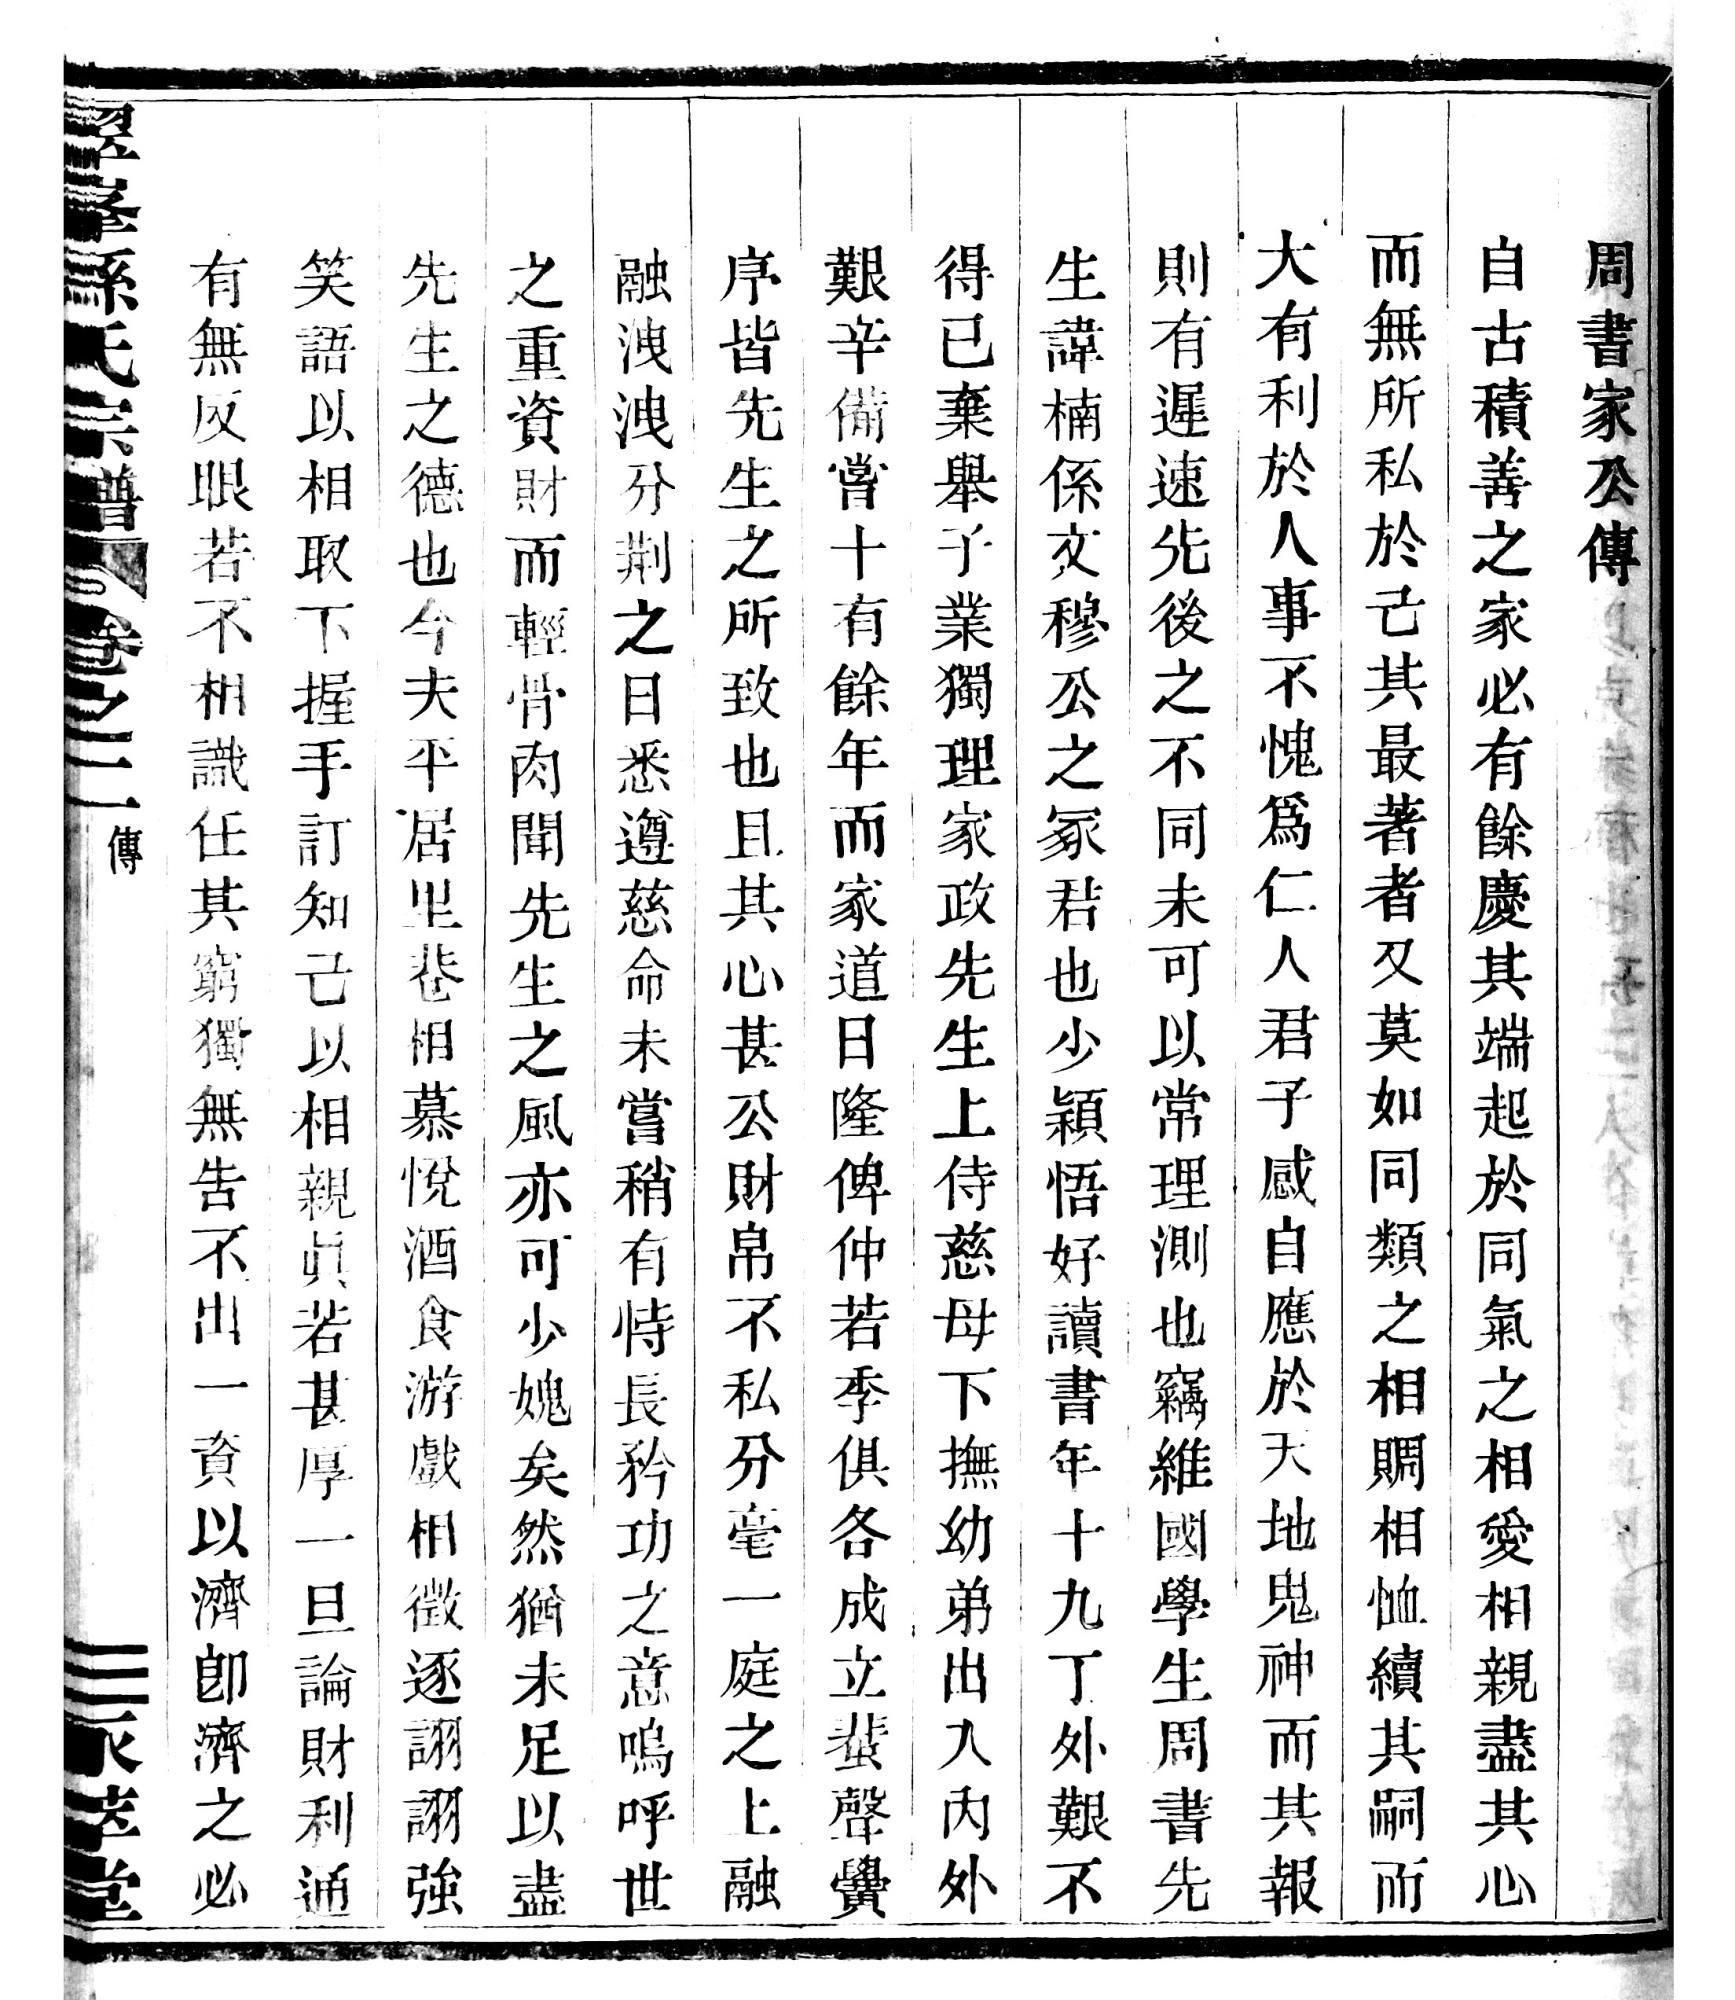 周書家公傳
自古積善之家必有餘慶其端起於同氣之相愛相親盡其心
而無所私於己其最著者又莫如同類之相賙相恤續其嗣而
大有利於人事不愧爲仁人君子感自應於天地鬼神而其報
則有遲速先後之不同未可以常理測也竊維國學生周書先
生諱楠係文穆公之冢君也少穎悟好讀書年十九丁外艱不
得已棄舉子業獨理家政先生上侍慈母下撫幼弟出入內外
艱辛備嘗十有餘年而家道日隆俾仲若季俱各成立蜚聲黌
序皆先生之所致也且其心甚公財帛不私分毫一庭之上融
融洩洩分荆之日悉遵慈命未嘗稍有恃長矜功之意嗚呼世
之重資財而輕骨肉聞先生之風亦可少媿矣然猶未足以盡
先生之德也今夫平居里巷相慕悅酒食游戲相徵逐詡詡強
笑語以相取下握手訂知己以相親眞若甚厚一旦論財利通
有無反眼若不相識任其窮獨無告不出一資以濟卽濟之必
孫氏宗譜 卷之二 傳 三 永萃堂